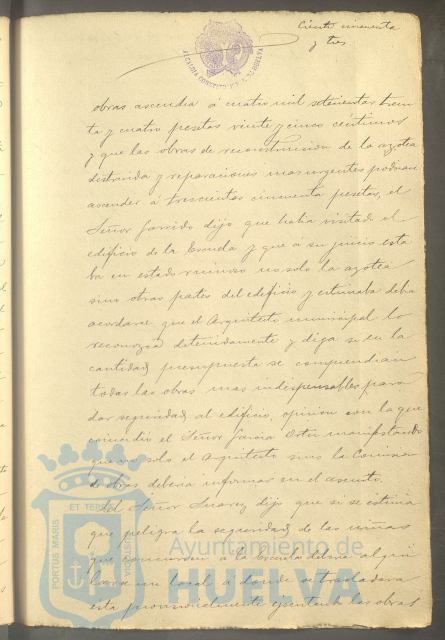 Ciento cincuenta
y tres
ALCALDIA CONSTITUCIONAL DE HUELVA
obras ascendia á cuatro mil setecientas trein
ta y cuatro pesetas veinte y cinco centimos
y que las obras de reconstruccion de la azotea
destruida y reparaciones mas urgentes podrian
ascender á trescientas cincuenta pesetas, el
Señor Garrido dijo que habia visitado el
edificio de la Escuela y que á su juicio esta
ba en estado ruinoso no solo la azotea
sino otras partes del edificio y estimaba debia
acordarse que el Arquitecto municipal lo
reconozca detenidamente y diga si en la
cantidad presupuesta se comprendian
todas las obras mas indispensables para
dar seguridad al edificio, opinion con la que
coincidió el Señor Garcia Ortiz manifestando
que no solo el Arquitecto sino la Comision
de obras deberia informar en el asunto.
El Señor Suarez dijo que si se estima
que peligra la seguridad de las niñas
que concurren á la Escuela debia alqui
larse un local á donde se trasladara
ésta provisionalmente ejecutando las obras
PORTUS MARIS ET TERRAE CUSTODIA
Ayuntamiento de
HUELVA